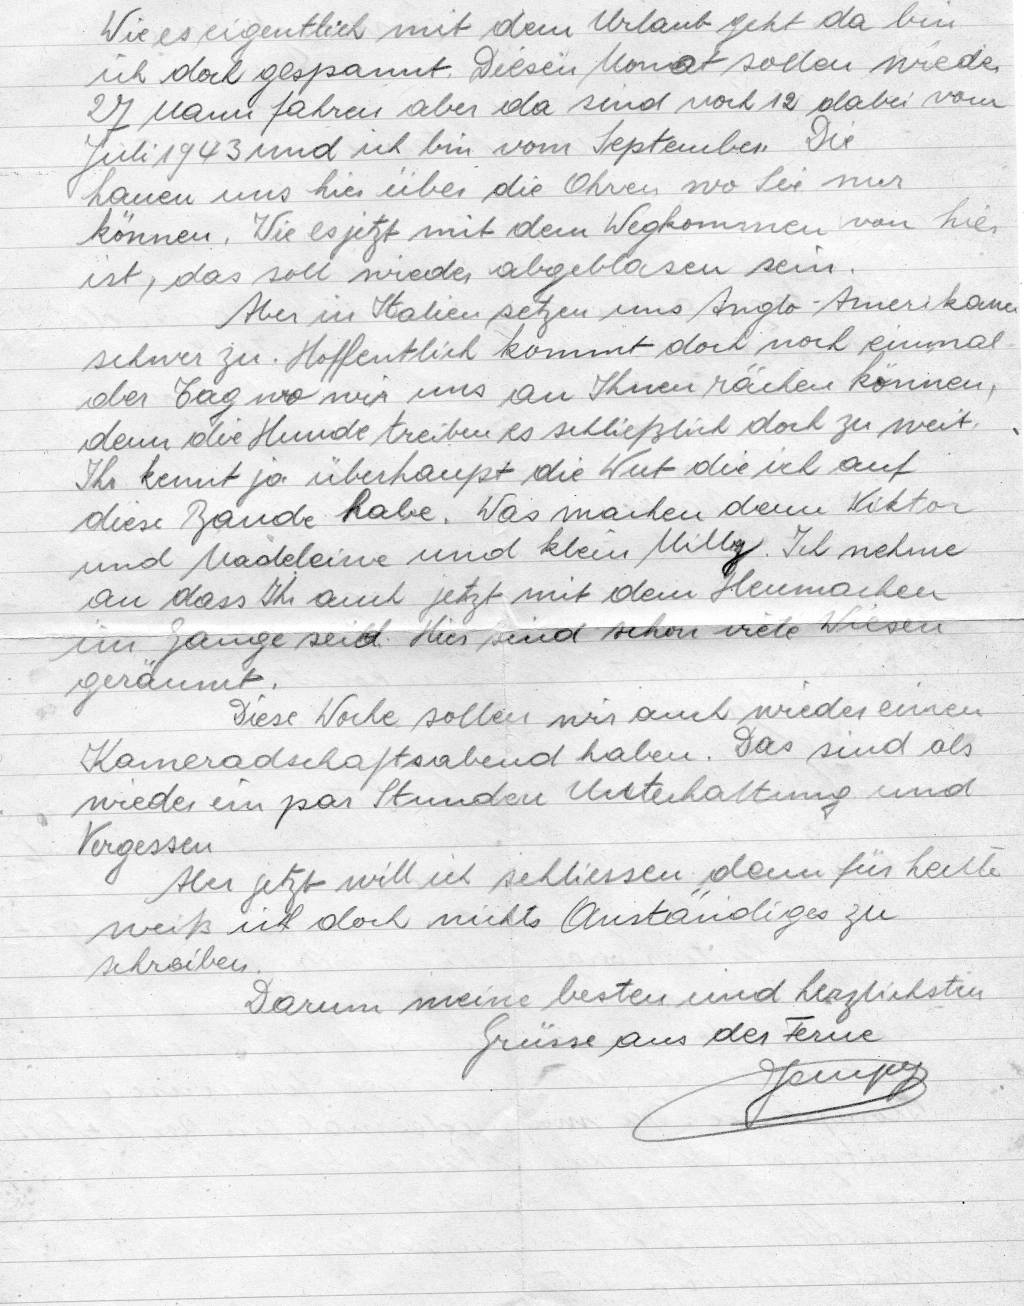 Wie es eigentlich mit dem Urlaub geht da bin
ich doch gespannt. Diesen Monat sollen wieder
27 Mann fahren aber da sind noch 12 dabei vom
Juli 1943 und ich bin vom September. Die
hauen uns hier über die Ohren wo Sie nur
können. Wie es jetzt mit dem Wegkommen von hier
ist, das soll wieder abgeblasen sein.
Aber in Italien setzen uns Anglo-Amerikaner
schwer zu. Hoffentlich kommt doch noch einmal
der Tag wo wir uns an Ihnen rächen können,
denn die Hunde treiben es schließlich doch zu weit.
Ihr kennt ja überhaupt die Wut die ich auf
diese Bande habe. Was machen denn Viktor
und Madeleine und klein Milly. Ich nehme
an dass Ihr auch jetzt mit dem Heumachen
im Gange seid. Hier sind schon viele Wiesen
geräumt.
Diese Woche sollen wir auch wieder einen
Kameradschaftsabend haben. Das sind als
wieder ein par Stunden Unterhaltung und
Vergessen
Aber jetzt will ich schliessen denn für heute
weiß ich doch nichts Anständiges zu
schreiben.
Darum meine besten und herzlichsten
Grüsse aus der Ferne
Jempy